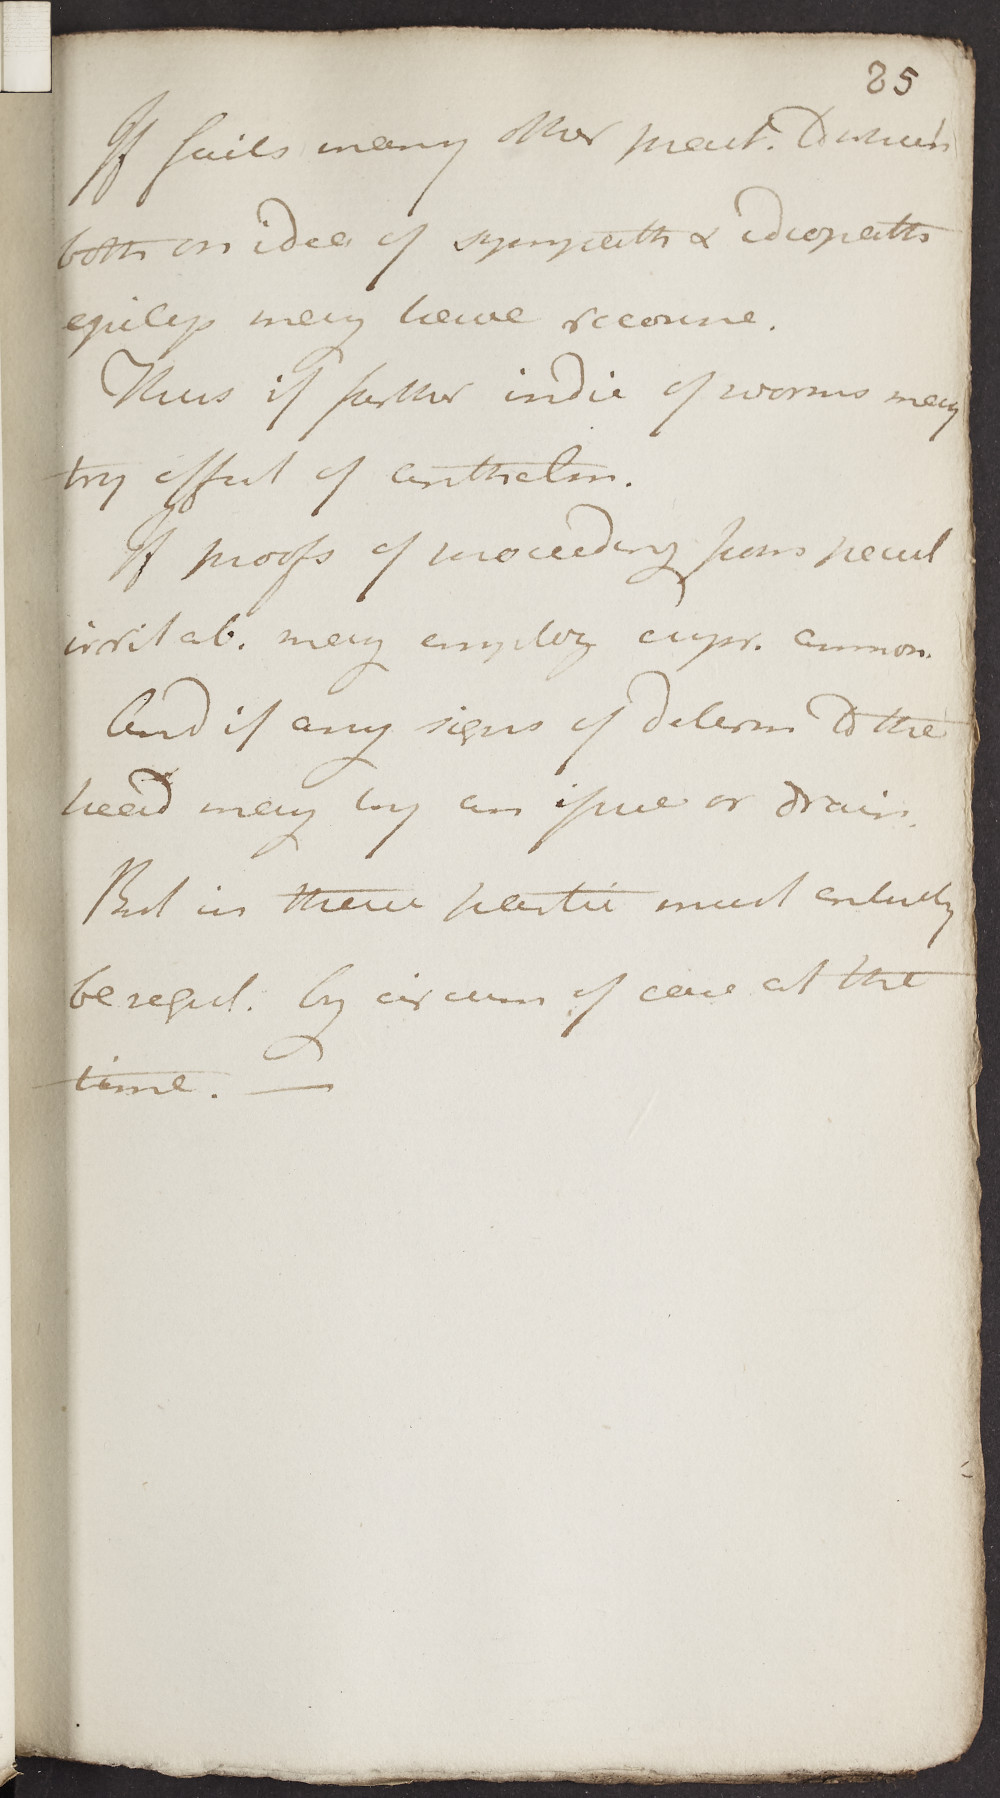 25
If fails many other pract. to which
both on idea of sympath & idiopath
epilep may have recourse.
Thus if further indic of worms may
try effect of anthelm.
If proofs of proceeding from pecul
irritab. may employ cupr. ammon.
And if any signs of determ to the
head may try an issue or drain.
But in these partic must entirely
be regul. by circum of case at the
time. —